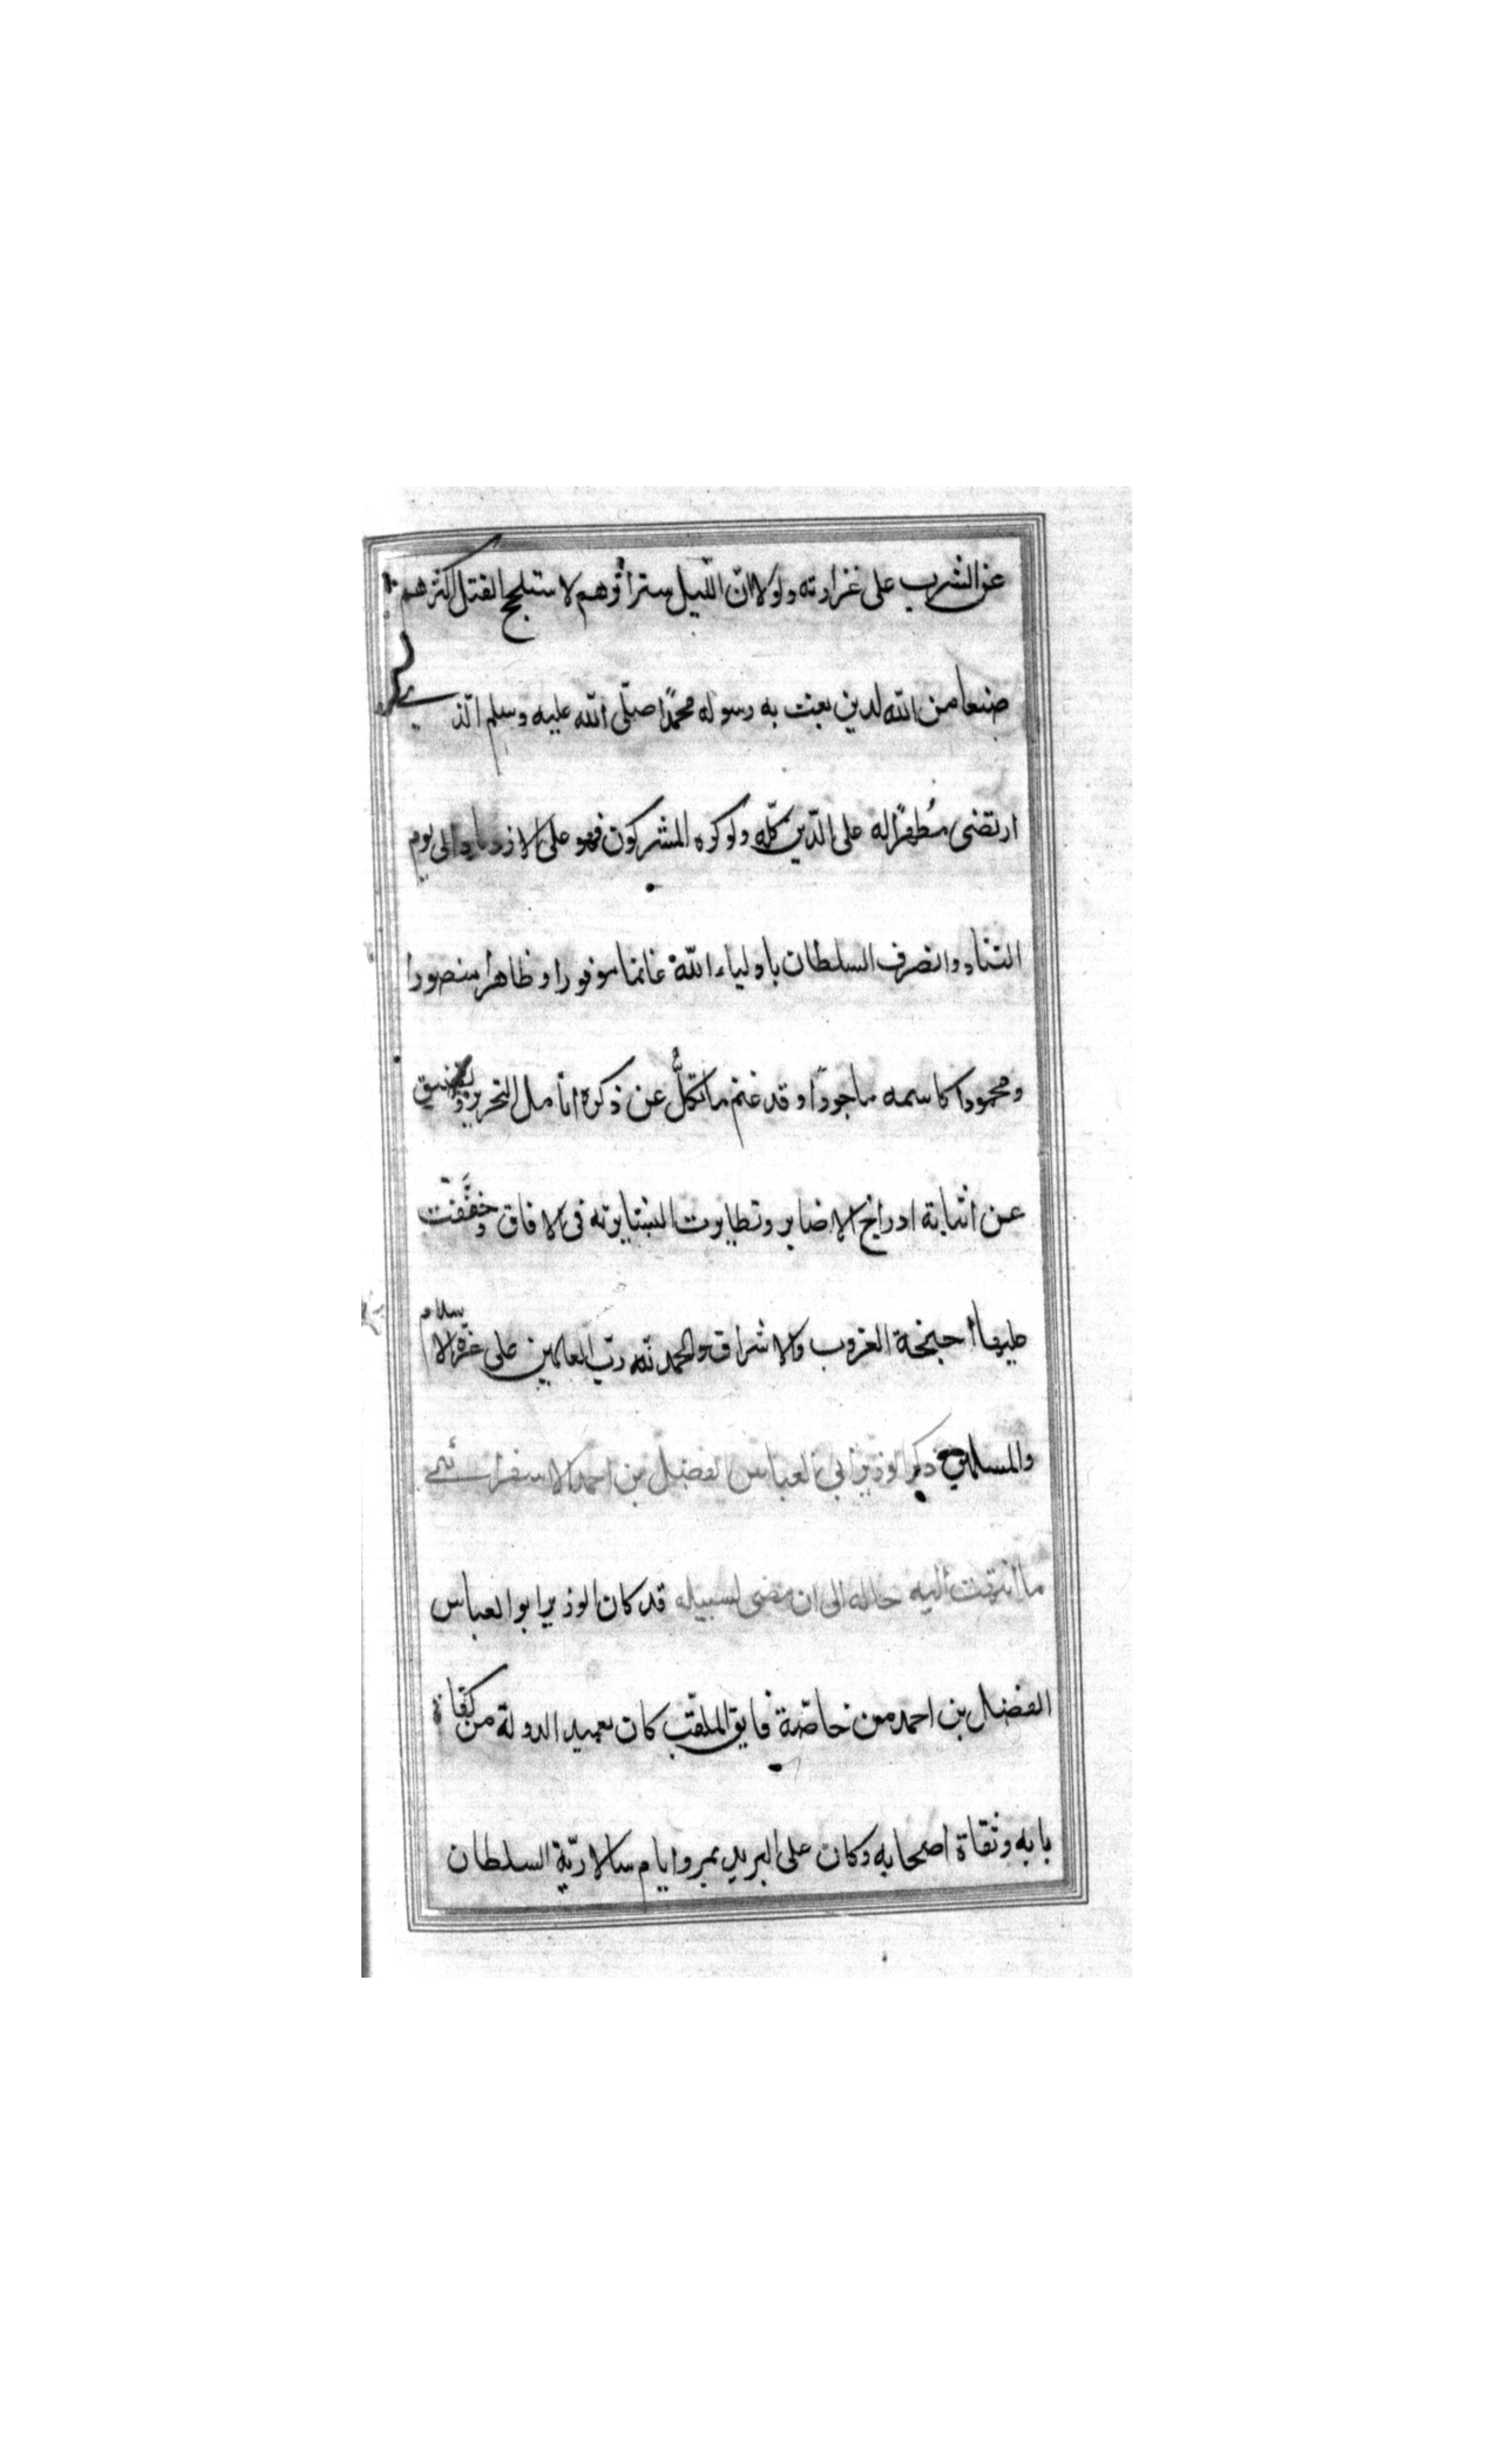 عن الشرب على غزارته ولولا ان الليل ستر اثرهم لاستلحم القتل اكثرهم
صنعا من الله لدين بعث به رسوله محمدًا صلّى الله عليه وسلم الذي
ارتضى مُظهرًا له على الدّين كلّه ولو كره المشركون فهو على الازدياد الى يوم
التناد وانصرف السلطان باولياء اللّه غانما موفورا وظاهرا منصورا
ومحمودا كاسمه ماجورًا وقد غنم ما تكلُّ عن ذكره انامل التحرير وتضيق
عن اثباته ادراج الاضابير وتطايرت البشاير به فى الافاق وخفّقت
طيرها أجنحة الغروب والاشراق والحمد لله ربّ العالمين على عزّة الاسلام
والمسلمين ذكر الوزير ابى العباس الفضل بن احمد الاسفرائني
ما انتهت اليه حاله الى ان مضى لسبيله قد كان الوزير ابو العباس
الفضل بن احمد من خاصّة فايق الملقّب كان بعميد الدولة من كفاة
بابه وثقاة اصحابه وكان على البريد بمرو ايام سالاريّة السلطان